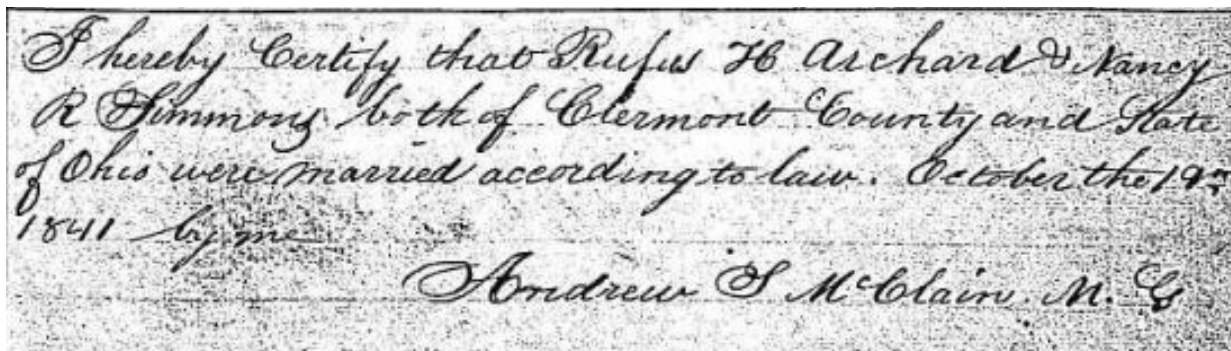 I hereby Certify that Rufus H Archard & Nancy
R Simmons both of Clermont County and State
of Ohio were married according to law. October the 19th
1841 by me
Andrew S McClain. M. G